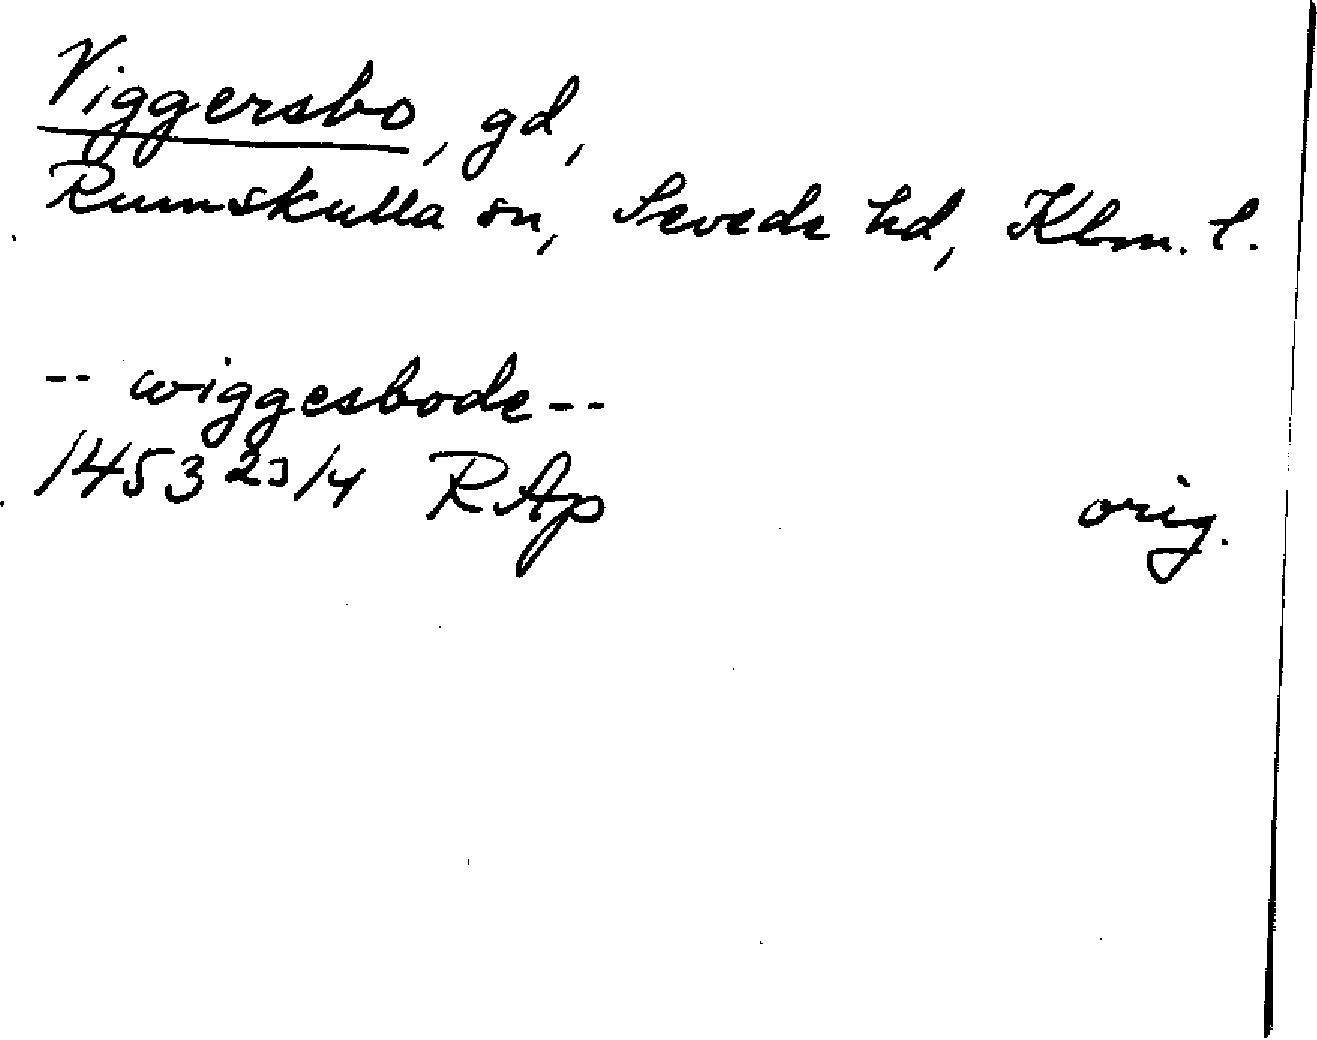 Viggersbo, gd,
Rumskulla sn, Sevede hd, Klm. l.
-- wiggesbode --
1453 23/4 RAp orig.